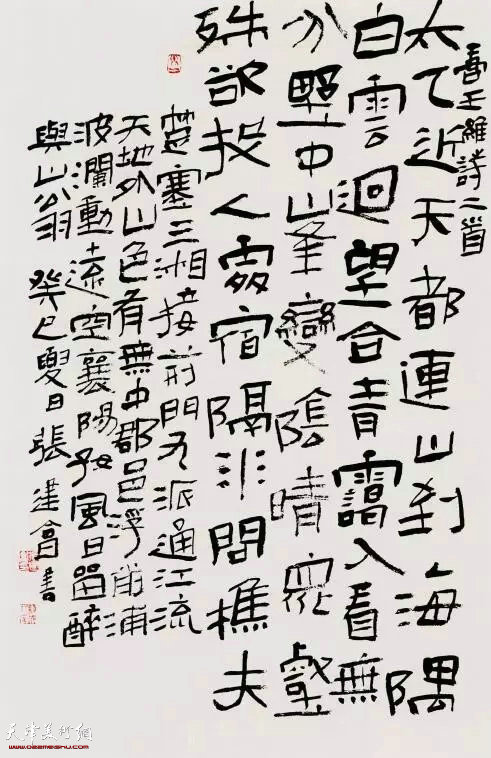 書王維詩二首
太乙近天都連山到海隅
白雲迴望合青靄入看無
分野中峯變陰晴眾壑
殊欲投人處宿隔水問樵夫
楚塞三湘接荊門九派通江流
天地外山色有無中郡邑浮前浦
波瀾動遠空襄陽好風日留醉
與山翁 癸巳夏日張建會書
天津美術網
www.022meishu.com